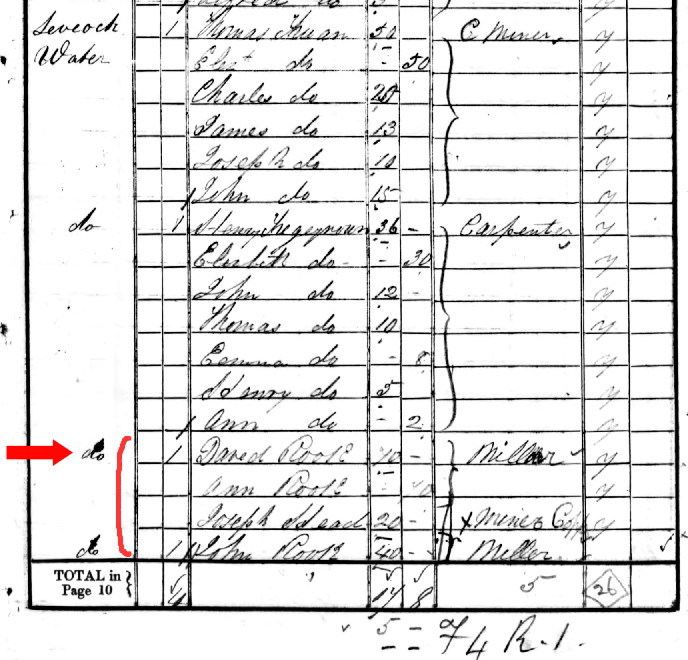 Levcock 1 Thomas 50 C Miner y
Water Elist do - 50 y
Charles do 25 y
James do 13 y
Joseph do 10 y
John do 15 y
do 1 Henry 36 - Carpenter y
Elesbith do - - 30 y
John do 12 - y
Thomas do 10 y
Emma do - 8 y
Henry do 5 y
Ann do - 2 y
do 1 David Rook 70 - Miller y
Ann Rook - 70 y
Joseph Head 20 - x Miner Copp y
do 1 John Rook 40 - Miller
TOTAL in
Page 10 4 17 8 5 26
5 - 74 R.1.